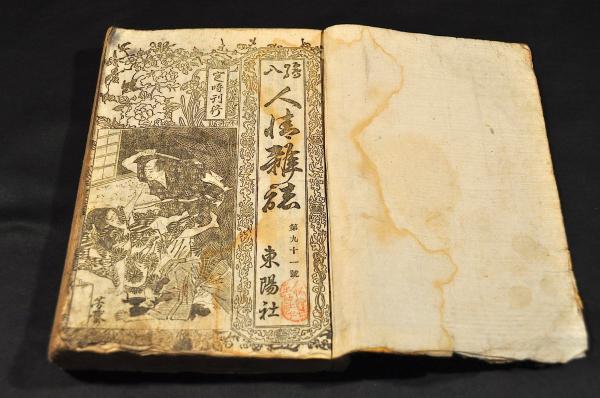 繪入
人情雜誌
第九十一號
東陽社
定時刊行